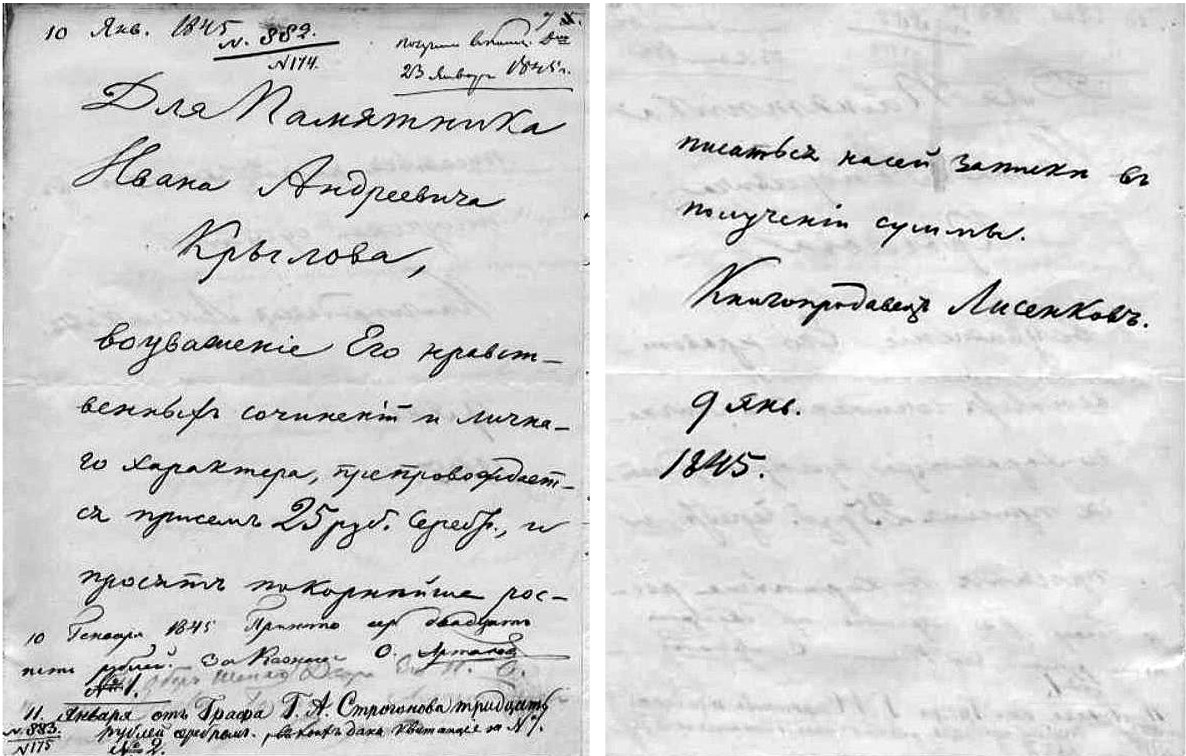 10 Янв. 1845
N. 882.
N 174.
23 Января 1845 г.
Для Памятника
Ивана Андреевича
Крылова,
воуважение Его нравст-
венныхъ сочиненій и лична-
го характера, препровождает-
ся присемъ 25 руб. Серебр., и
просятъ покорнейше рос-
10 Генваря 1845 Принято сер. двадцать
пять рублей. За Казнач.
№ 1.
11. Января отъ Графа Г. А. Строгонова тридцать
N. 883. рублей серебромъ, квитанція
N 175 № 2.
писаться насей Записки въ
полученіи суммы.
Книгопродавецъ Лисенковъ.
9 Янв.
1845.